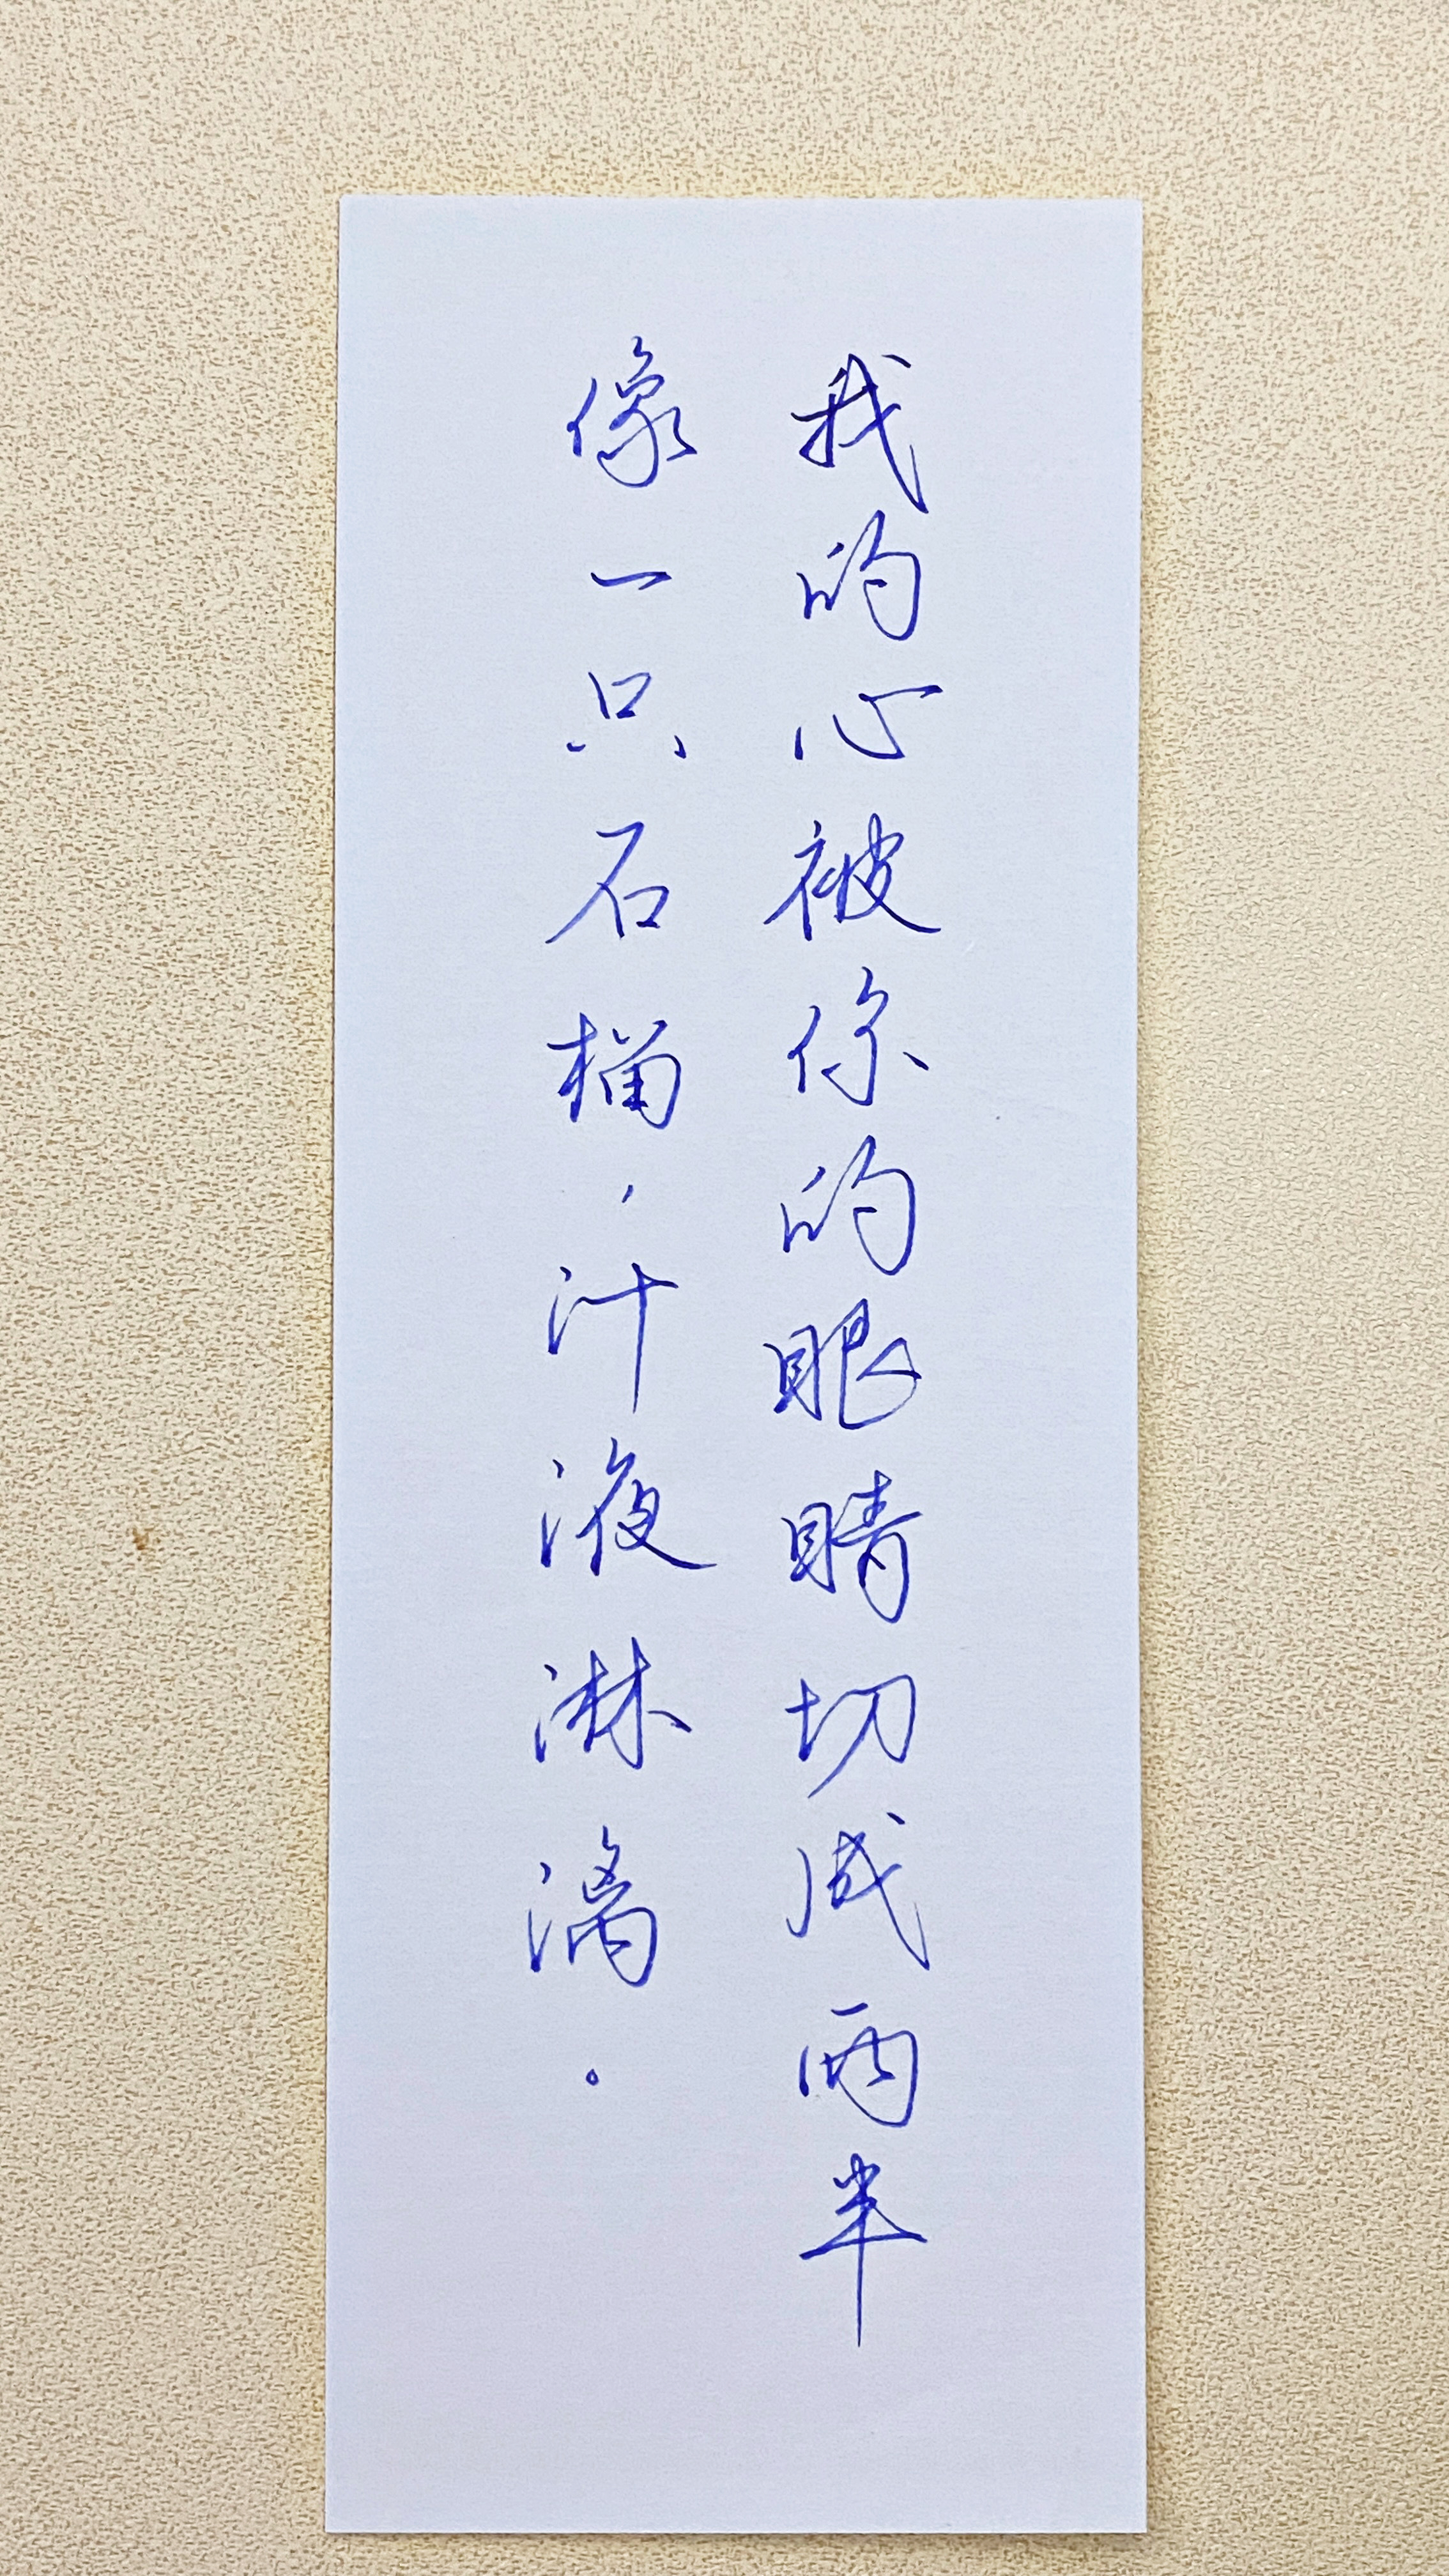 我的心被你的眼睛切成两半
像一只石榴，汁液淋漓。